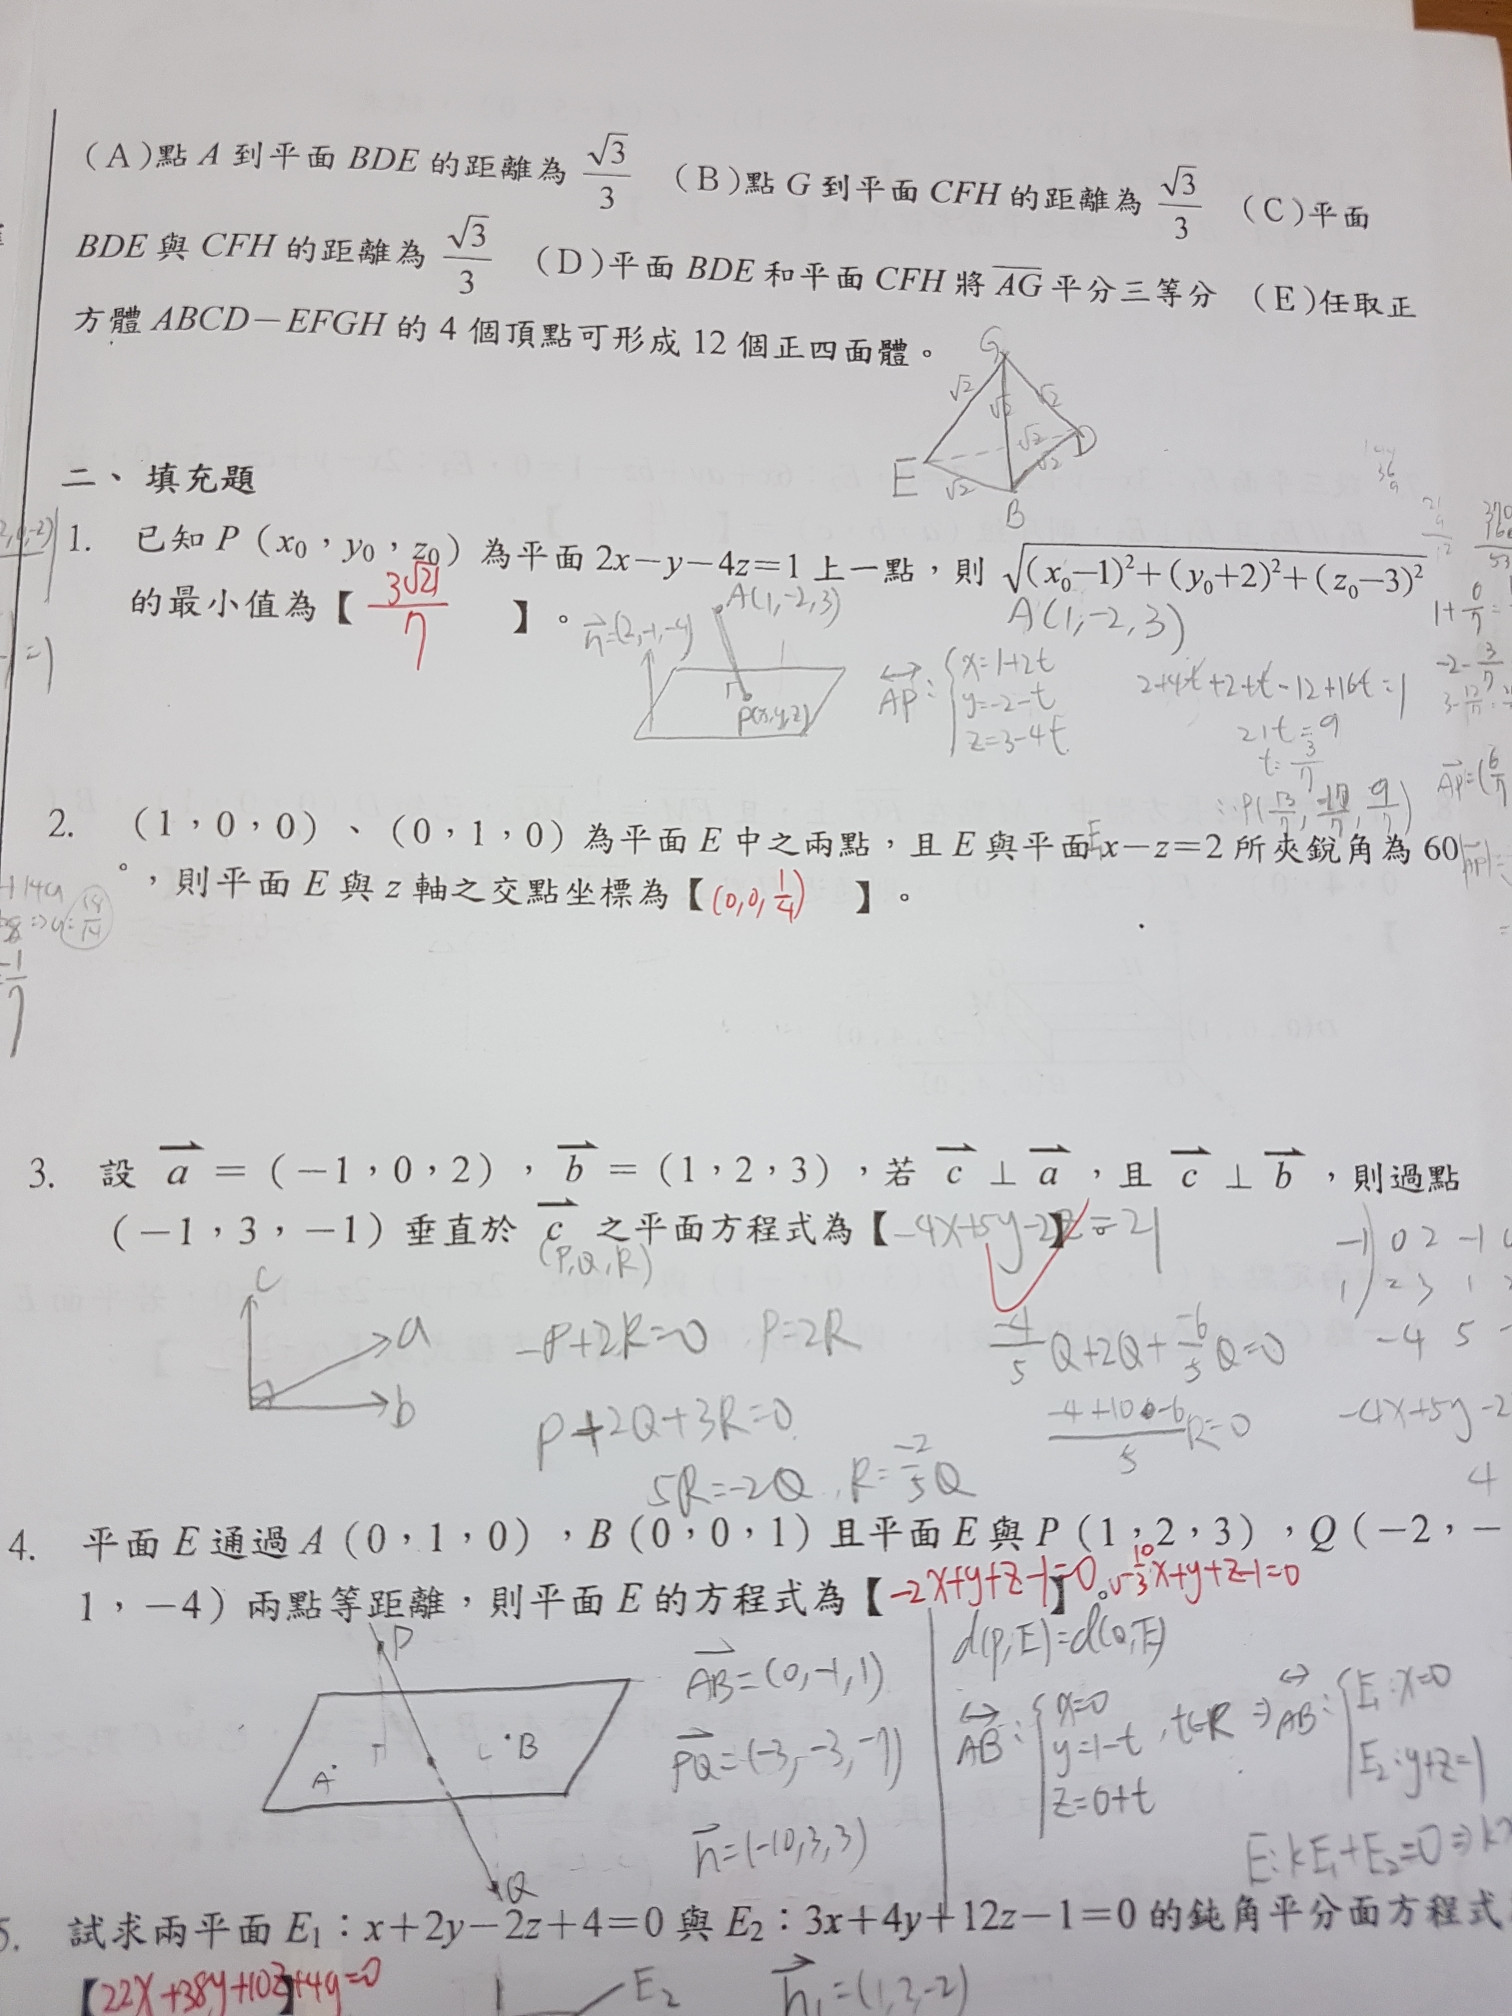 (A)點 A 到平面 BDE 的距離為 √3/3 (B)點 G 到平面 CFH 的距離為 √3/3 (C)平面
BDE 與 CFH 的距離為 √3/3 (D)平面 BDE 和平面 CFH 將 AG 平分三等分 (E)任取正
方體 ABCD-EFGH 的 4 個頂點可形成 12 個正四面體。
G
√2 √2 √2
√2 √2 √2
E D
B
二、填充題
1. 已知 P(x₀,y₀,z₀)為平面 2x-y-4z=1 上一點,則 √(x₀-1)²+(y₀+2)²+(z₀-3)²
的最小值為【3√21/7】。
n=(2,-1,-4)
A(1,-2,3)
P(x,y,z)
A(1,-2,3)
AP: x=1+2t
y=-2-t
z=3-4t
2+4t+2+t-12+16t=1
21t=9
t=3/7
2. (1,0,0)、(0,1,0)為平面 E 中之兩點,且 E 與平面 x-z=2 所夾銳角為 60
°,則平面 E 與 z 軸之交點坐標為【(0,0,1/4)】。
3. 設 a=(-1,0,2),b=(1,2,3),若 c⊥a,且 c⊥b,則過點
(-1,3,-1)垂直於 c 之平面方程式為【-4x+5y-2z=21】
(P,Q,R)
c
a
b
-P+2R=0 P=2R
P+2Q+3R=0
5R=-2Q, R=-2/5Q
-4/5Q+2Q+-6/5Q=0
-4x+5y-2
4. 平面 E 通過 A(0,1,0),B(0,0,1)且平面 E 與 P(1,2,3),Q(-2,-
1,-4)兩點等距離,則平面 E 的方程式為【-2x+y+z-1=0】。 -10/3x+y+z-1=0
P
A B
Q
AB=(0,-1,1)
PQ=(-3,-3,-7)
n=(-10,3,3)
d(P,E)=d(Q,E)
AB: x=0
y=1-t ,t∈R ⇒ AB: E₁:x=0
z=0+t
E₂:y+z=1
E:kE₁+E₂=0⇒
5. 試求兩平面 E₁:x+2y-2z+4=0 與 E₂:3x+4y+12z-1=0 的鈍角平分面方程式
【22x+38y+10z+49=0】
E₂
n₁=(1,2,-2)